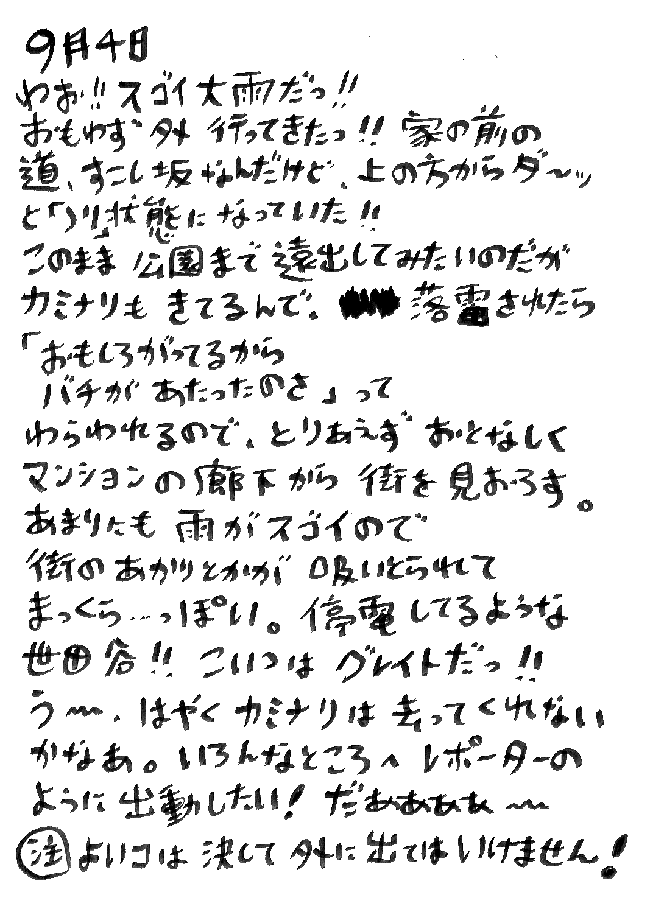 9月4日
わお!!スゴイ大雨だっ!!
おもわず外 行ってきたっ!! 家の前の
道、すこし坂なんだけど、上の方からダ〜ッ
と「川」状態になっていた!!
このまま 公園まで遠出してみたいのだが
カミナリも きてるんで。 落雷されたら
「おもしろがってるから
バチが あたったのさ」って
わらわれるので、とりあえず おとなしく
マンションの廊下から 街を見おろす。
あまりにも 雨がスゴイので
街のあかりとかが 吸いとられて
まっくら…っぽい。停電してるような
世田谷!! こいつは グレイトだっ!!
う〜、はやく カミナリは 去ってくれない
かなぁ。いろんなところへ レポーターの
ように 出動したい! だぁぁぁぁ〜
㊟ よいコは 決して 外に 出ては いけません!